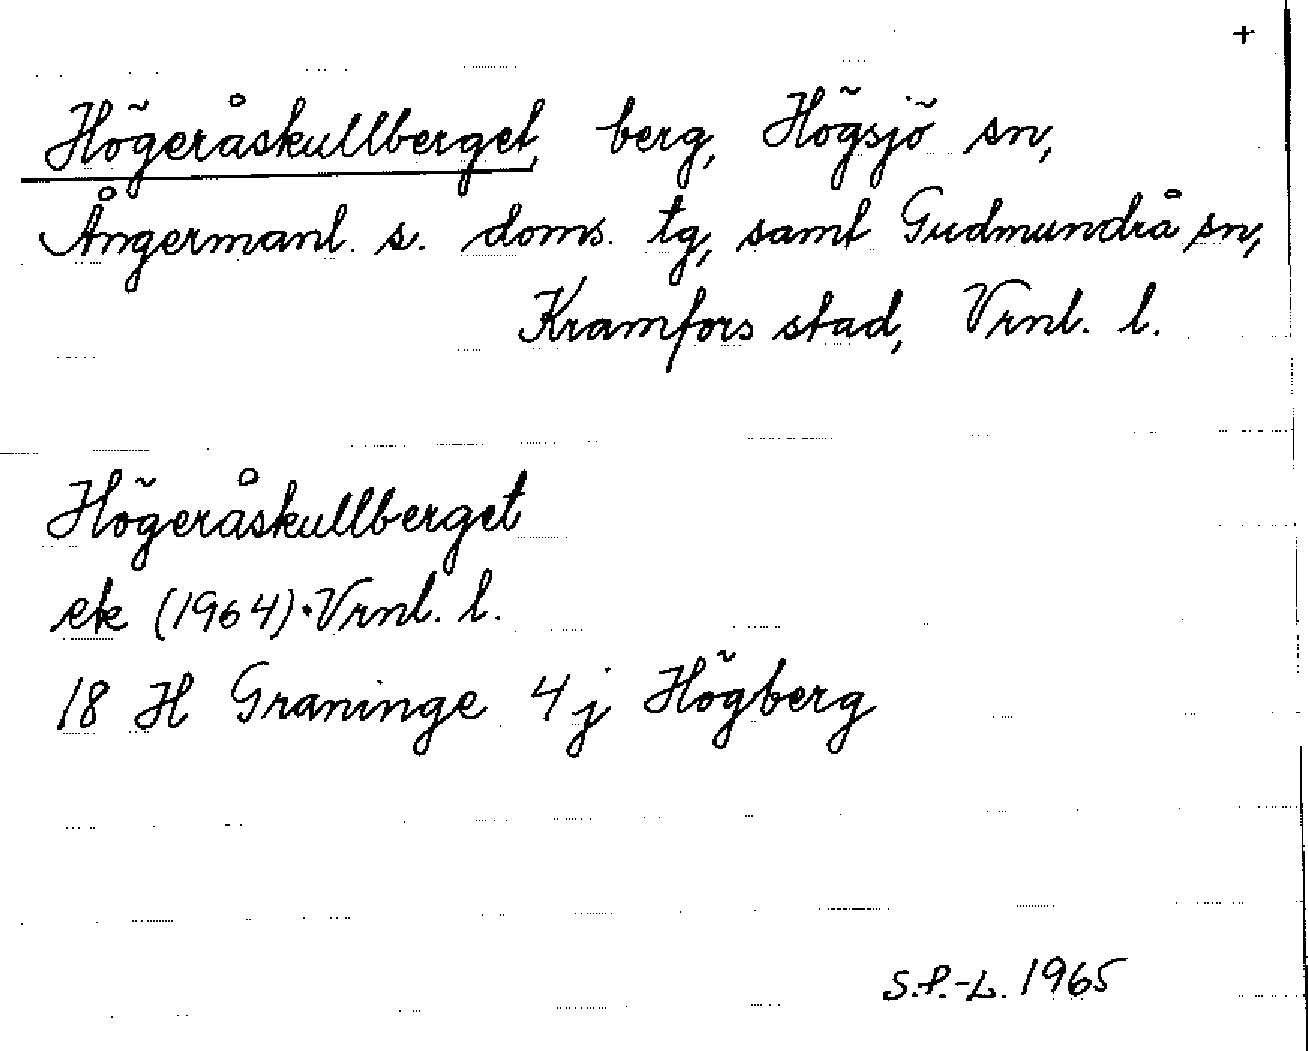 +
Högeråskullberget, berg, Högsjö sn,
Ångermanl. s. doms. tg, samt Gudmundrå sn,
Kramfors stad, Vrnl. l.
Högeråskullberget
ek (1964) • Vrnl. l.
18 H Graninge 4 j Högberg
S.P.-L. 1965